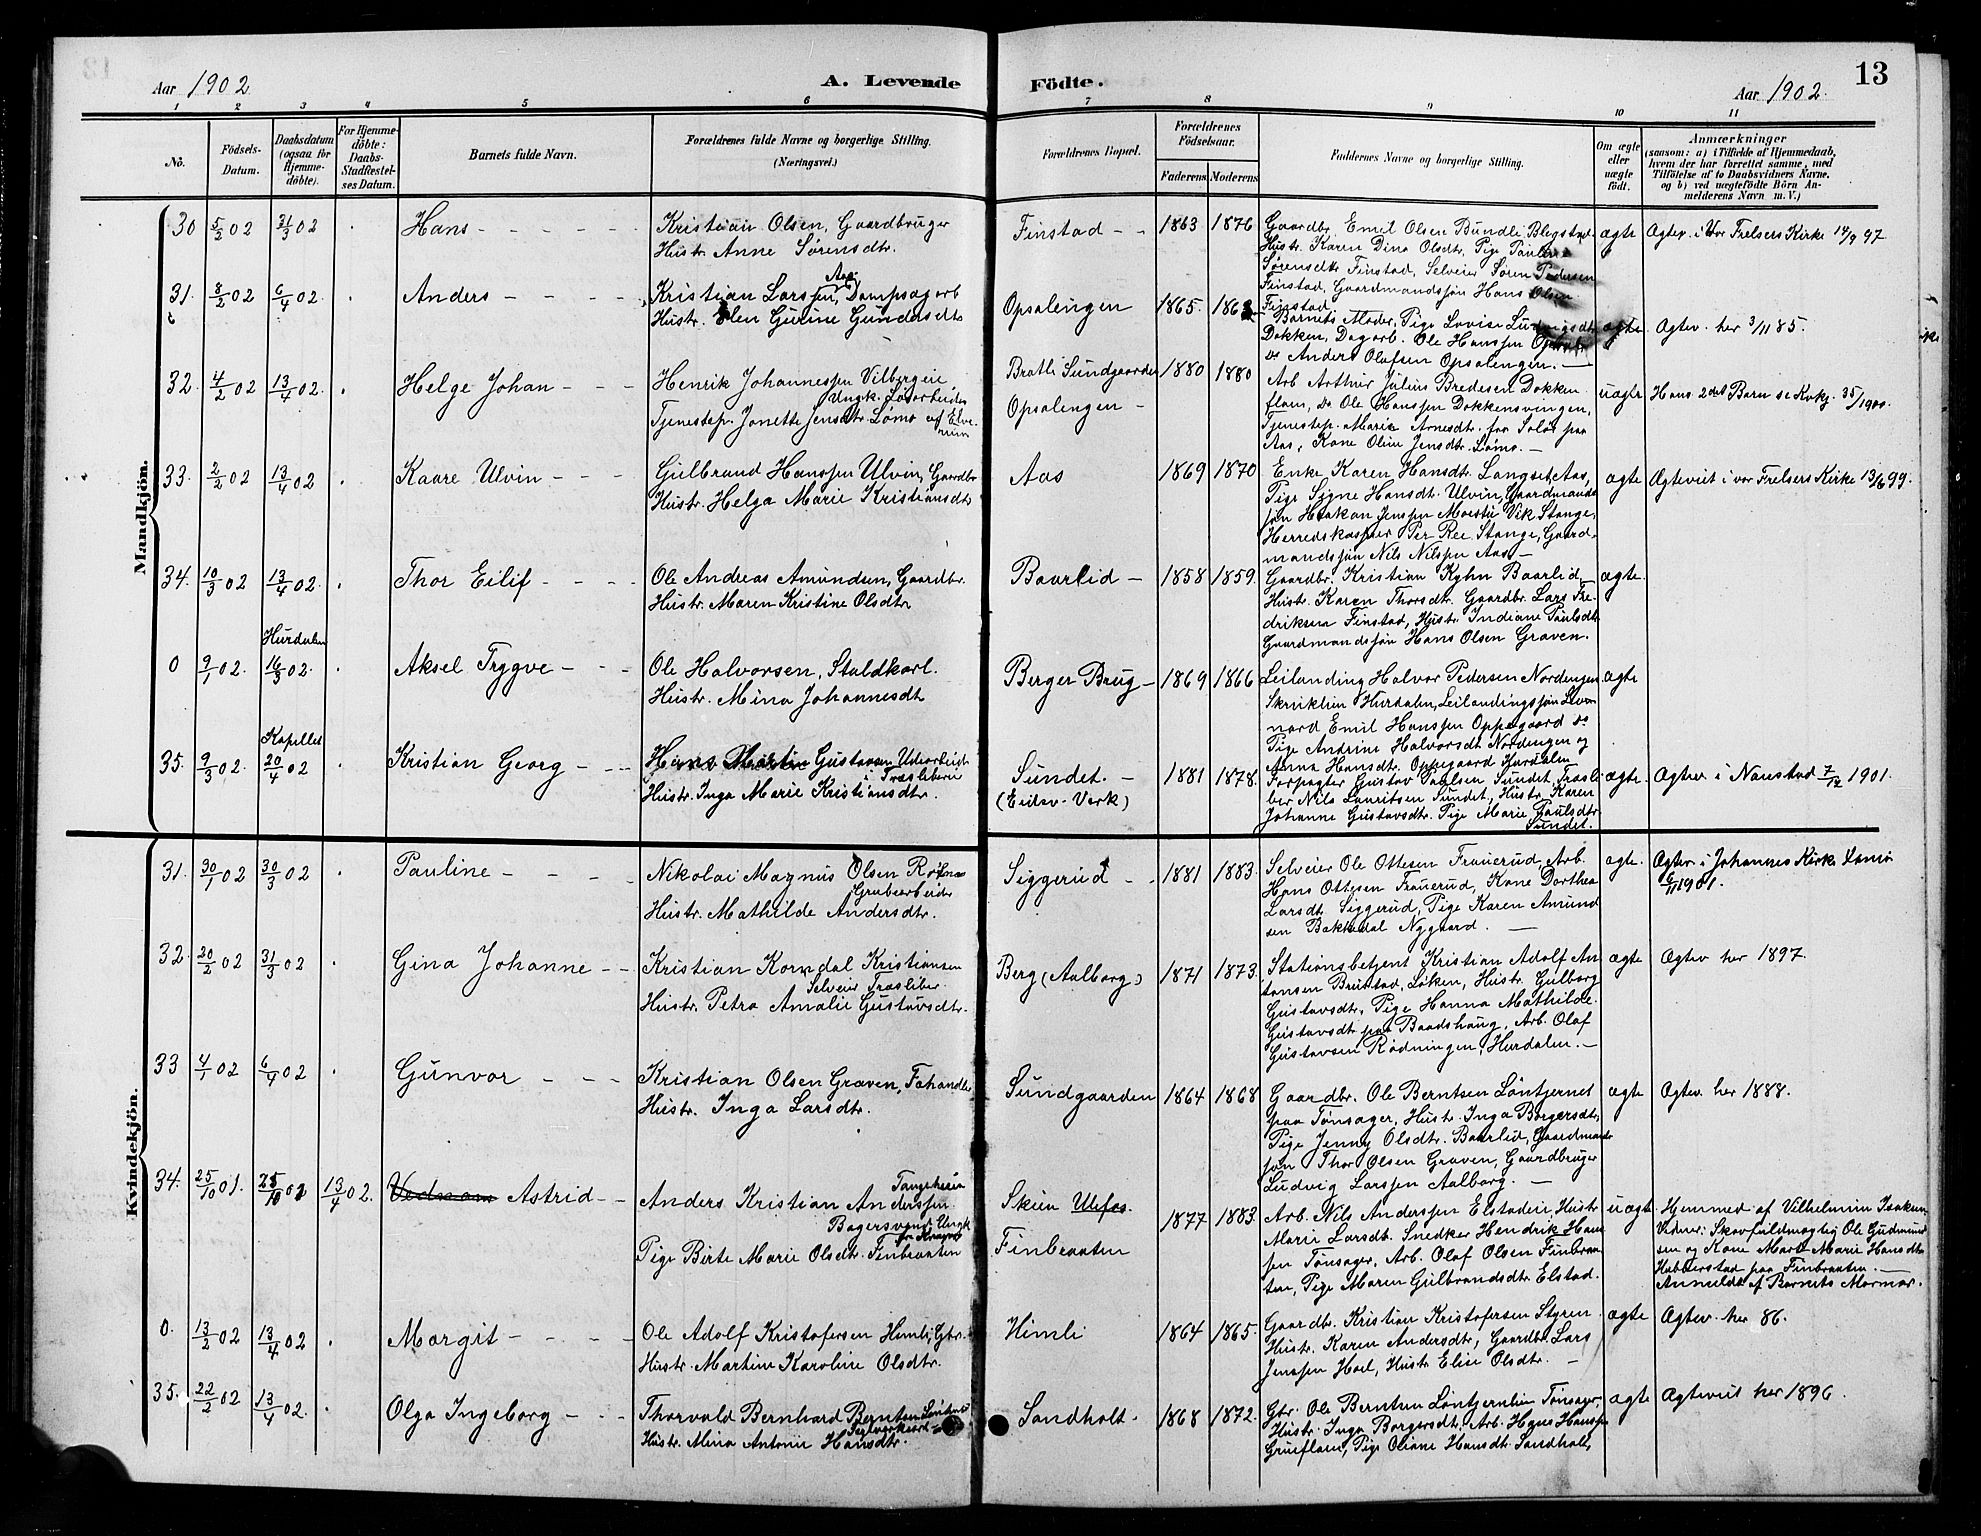 Aar 1902
A. Levende
Födte.
Aar 1902.
13
1 2 3 4 5 6 7 8 9 10 11
No.
Födsels-Datum.
Daabsdatum (ogsaa for Hjemmedöbte).
For Hjemmedöbte: Daabs-Stadfæstelses Datum.
Barnets fulde Navn.
Forældrenes fulde Navne og borgerlige Stilling.
(Næringsvei.)
Forældrenes Bopæl.
Forældrenes Födselsaar.
Faderens Moderens
Faddernes Navne og borgerlige Stilling.
Om ægte eller uægte födt.
Anmærkninger
(saasom: a) i Tilfælde af Hjemmedaab,
hvem der har forrettet samme, med
Tilföielse af to Daabsvidners Navne.
og b) ved uægtefödte Börn An-
melderens Navn m. V.)
Mandkjön.
30 5/2 02 31/3 02 Hans
Kristian Olsen, Gaardbruger
Hustr. Anne Sørensdtr.
Finstad 1863 1876
Gaardbr. Emil Olsen Bundli
Hustr. Karen Dina Olsdtr, Pige
Sørensdtr Finstad, Selveier Søren Pedersen
Finstad, Gaardmandssøn Hans Olsen
Finstad
ægte
Ægtev. i Vor Frelsers Kirke 14/9 97
31. 8/2 02 6/4 02 Anders
Kristian Larssen, Dampsagarb
Hustr. Elen Gurine Gundersdtr
Opsalengen 1865.
Barnets Moder, Pige Lovise
Dokken, Dagarb. Ole Hanssen
do Anders Olafsen Opsalengen.
ægte
Ægtev. her 3/11 85.
32. 4/2 02 13/4 02. Helge Johan
Henrik Johannessen Vilbergeie
Ungk. Løsarbeider
Tjenestep. Jonette Jensdtr Lømo af Elverum
Bratli Sundgaarden
Opsalengen
1880 1880
Arb Arthur Julius Bredesen Dokken
flaen, do Ole Hanssen Dokkensvingen,
Tjenestep. Marie Arnesdtr. fra Solør paa
Aas, Kone Oline Jensdtr. Lømo.
uægte
Hans 2det Barn se Kvkj. 35/1900.
33. 2/2 02 13/4 02 Kaare Ulvin
Gulbrand Hanssen Ulvin, Gaardbr
Hustr. Helga Marie Kristiansdtr
Aas 1869 1870
Enke Karen Hansdtr. Langset Aas,
Pige Signe Hansdtr. Ulvin, Gaardmands
søn Haakon Jenssen Moestu Vik Stange,
Herredskasserer Per Ree Stange, Gaard
mandssøn Nils Nilssen Aas
ægte
Ægteviet i vor Frelsers Kirke 13/6 99.
34. 10/3 02 13/4 02. Thor Eilif
Ole Andreas Amundsen, Gaardbr.
Hustr. Maren Kristine Olsdtr
Baarlid 1858 1859.
Gaardbr. Kristian Kyhn Baarlid,
Hustr. Karen Thorsdtr. Gaardbr. Lars Fre
driksen Finstad, Hustr Indiane Paulsdtr
Gaardmandssøn Hans Olsen Graven.
ægte.
Hurdalen
0 9/1 02. 16/3 02. Aksel Trygve
Ole Halvorsen, Staldkarl.
Hustr. Mina Johannesdtr
Berger Brug 1869 1866
Leilænding Halvor Pedersen Nordengen
Skrukklien Hurdalen, Leilændingssøn
Emil Hanssen Oppegaard do
Pige Andrine Halvorsdtr Nordengen og
Anna Hansdtr. Oppegaard Hurdalen
ægte
Kapellet
35. 9/3 02. 20/4 02 Kristian Georg
Hans Martin Gustavsen Udearbeider
i Træsliberi
Hustr. Inga Marie Kristiansdtr.
Sundet.
(Eidsv. Verk)
1881 1878.
Forpagter Gustav Paulsen Sundet, Træsli
ber Nils Lauritsen Sundet, Hustr. Karen
Johanne Gustavsdtr. Pige Marie Paulsdtr
Sundet.
ægte.
Ægtev i Nanestad 7/12 1901.
Kvindekjön.
31. 30/1 02 30/3 02 Pauline
Nikolai Magnus Olsen
Grubearbeider
Hustr. Mathilde Andersdtr.
Siggerud 1881 1883.
Selveier Ole Ottesen Frauerud, Arb.
Hans Ottesen Frauerud, Kone Dorthea
Larsdtr Siggerud, Pige Karen Amund
sen Bakkedal Nygaard.
ægte.
Ægtev. i Johannes Kirke
6/11 1901.
32. 20/2 02 31/3 02 Gina Johanne
Kristian Korndal Kristiansen
Selveier Træsliber.
Hustr. Petra Amalie Gustavsdtr.
Berg (Aalborg) 1871 1873.
Stationsbetjent Kristian Adolf An
tonsen Brustad, Løken, Hustr. Gulborg
Gustavsdtr, Pige Hanna Mathilde
Gustavsdtr paa Baadshaug, Arb. Olaf
Gustavsen Rødningen, Hurdalen.
ægte
Ægtev her 1897.
33 4/1 02 6/4 02 Gunvor
Kristian Olsen Graven, Fæhandler
Hustr. Inga Larsdtr.
Sundgaarden 1864 1868
Gaardbr. Ole Berntsen Løntjernet
paa Tønsager, Hustr. Inga Borgersdtr,
Pige Jenny Olsdtr. Baarlid, Gaardmands
søn Thor Olsen Graven, Gaardbruger
Ludvig Larssen Aalborg.
ægte
Ægtev. her 1888.
34. 25/10 01. 13/4 02. Astrid
Anders Kristian Anderssen
Bagersvend, Ungk
Pige Birte Marie Olsdtr. Finbraaten
Skien Ulefos
Finbraaten
1877 1883
Arb. Nils Anderssen Elstadeie, Hustr
Marie Larsdt. Snedker Hendrik Hans
sen Tønsager, Arb. Olaf Olsen Finbraa
ten, Pige Maren Gulbrandsdtr Elstad.
uægte
Hjemmed af Vilhelmine Isaksen
Vidner: Skovfuldmægtig Ole Gudmund
sen og Kone Mart. Marie Hansdtr
Habberstad paa Finbraaten.
Anmeldt af Barnets Mormor.
0. 13/2 02 13/4 02 Margit
Ole Adolf Kristofersen Himli, Gbr.
Hustr. Martine Karoline Olsdtr.
Himli 1864 1865.
Gaardbr. Kristian Kristofersen Styren
Hustr. Karen Andersdtr, Gaardbr. Lars
Jenssen Hoel, Hustr Elise Olsdtr.
ægte
Ægtev. her 86.
35. 22/2 02 13/4 02. Olga Ingeborg
Thorvald Bernhard Berntsen
Hustr. Mina Antonie Hansdtr.
Sandholt 1868 1872.
Gbr. Ole Berntsen Løntjernlien Tønsager,
Hustr. Inga Borgersdtr, Arb. Hans Hanssen
Grueflaen, Pige Oliane Hansdtr. Sandholt,
ægte
Ægteviet her 1896.